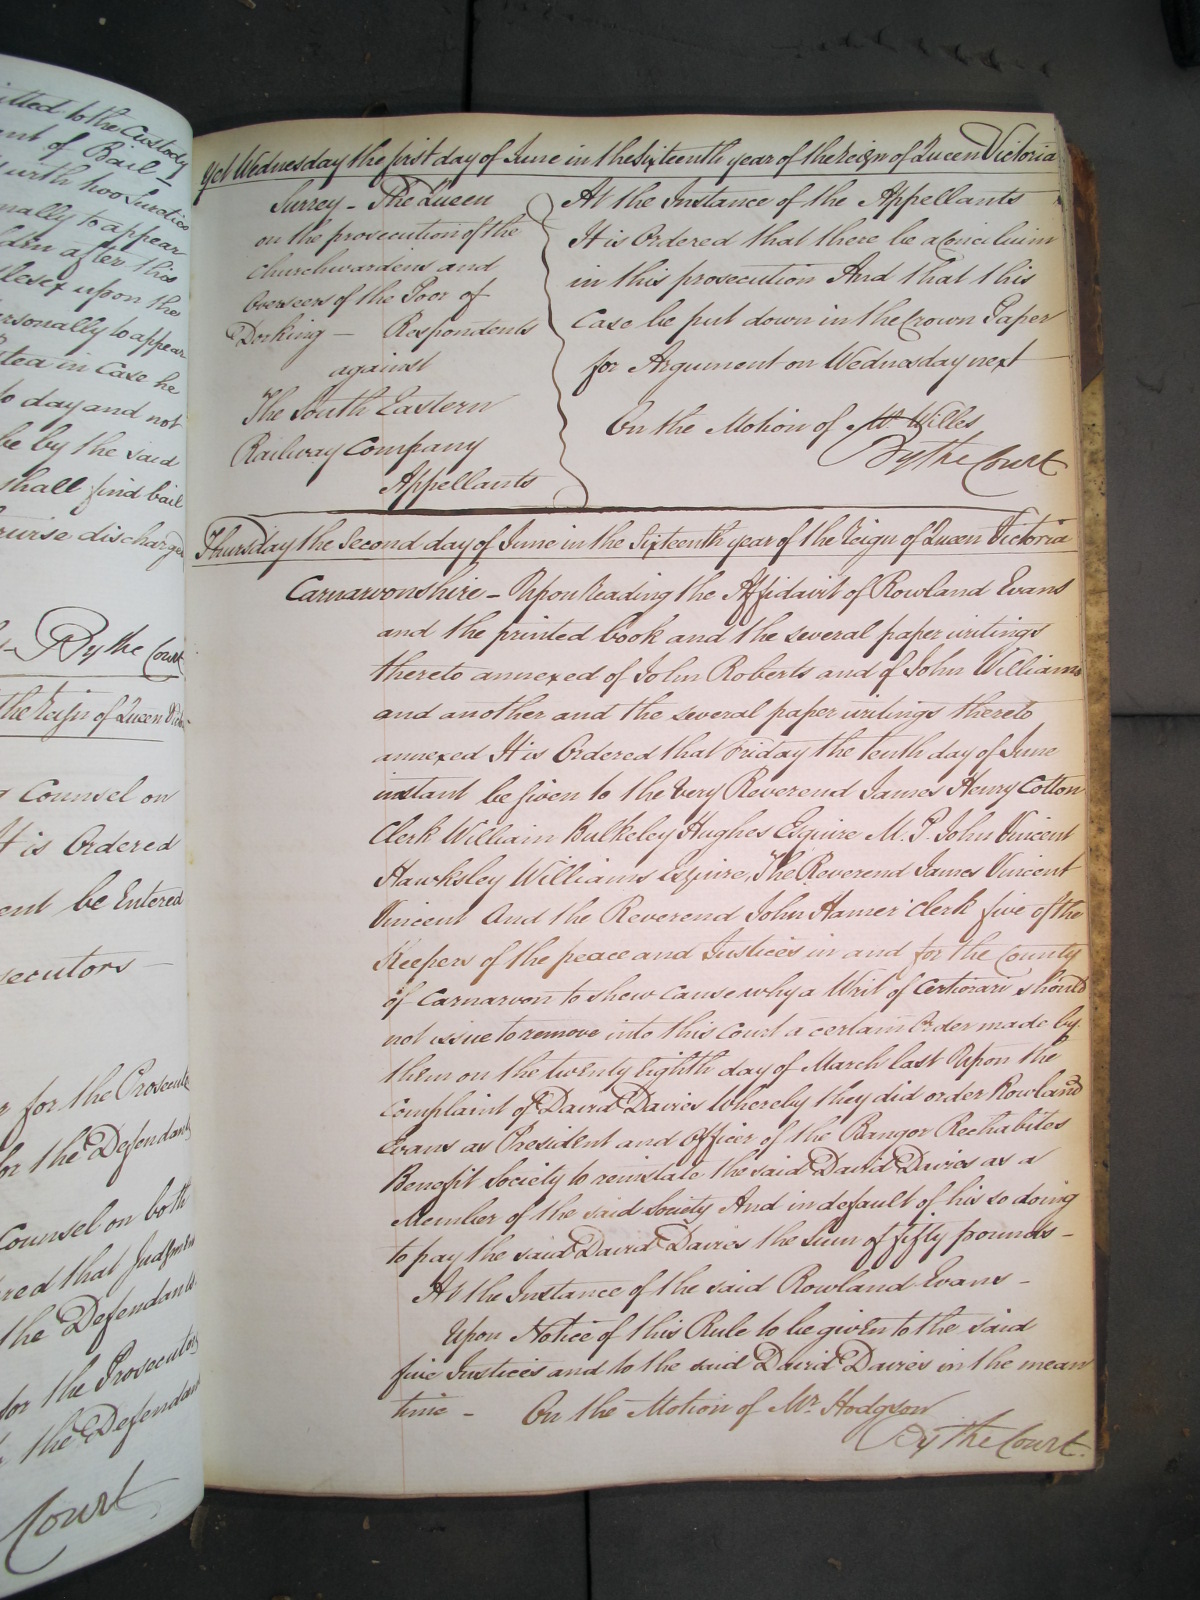 itted to the Custody
ent of Bail –
with two Sureties
nally to appear
lden after this
dlesex upon the
ersonally to appear
tea in Case he
to day and not
be by the said
shall find bail
rwise discharged
By the Court
the Reign of Queen Victoria
Counsel on
It is Ordered
ent be Entered
secutors –
r for the Prosecutor
for the Defendants
Counsel on both
red that Judgment
the Defendants
for the Prosecutors
the Defendant
Court
Yet Wednesday the first day of June in the Sixteenth year of the Reign of Queen Victoria
Surrey – The Queen
on the prosecution of the
Churchwardens and
Overseers of the Poor of
Dorking – Respondents
against
The South Eastern
Railway Company
Appellants
At the Instance of the Appellants
It is Ordered that there be a Concilium
in this prosecution And that this
Case be put down in the Crown Paper
for Argument on Wednesday next
On the Motion of Mr Willes
By the Court
Thursday the Second day of June in the Sixteenth year of the Reign of Queen Victoria
Carnarvonshire – Upon Reading the Affidavit of Rowland Evans
and the printed book and the several paper writings
thereto annexed of John Roberts and of John Williams
and another and the several paper writings thereto
annexed It is Ordered that Friday the tenth day of June
instant be given to the Very Reverend James Henry Cotton
Clerk William Bulkeley Hughes Esquire M.P. John Vincent
Hawksley Williams Esquire, The Reverend James Vincent
Vincent And the Reverend John Hamer Clerk five of the
Keepers of the peace and Justices in and for the County
of Carnarvon to shew cause why a Writ of Certiorari should
not issue to remove into this Court a certain Order made by
them on the twenty eighth day of March last Upon the
Complaint of David Davies Whereby they did order Rowland
Evans as President and Officer of the Bangor Rechabites
Benefit Society to reinstate the said David Davies as a
Member of the said Society And in default of his so doing
to pay the said David Davies the Sum of fifty pounds –
At the Instance of the said Rowland Evans –
Upon Notice of this Rule to be given to the said
five Justices and to the said David Davies in the mean
time – On the Motion of Mr. Hodgson
By the Court.